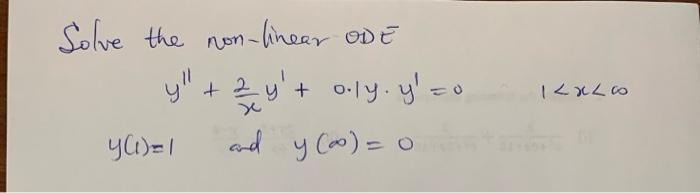 Solve the non-linear ODE
y'' + 2/x y' + 0.1y. y' = 0 1 < x < ∞
y(1)=1 and y(∞) = 0